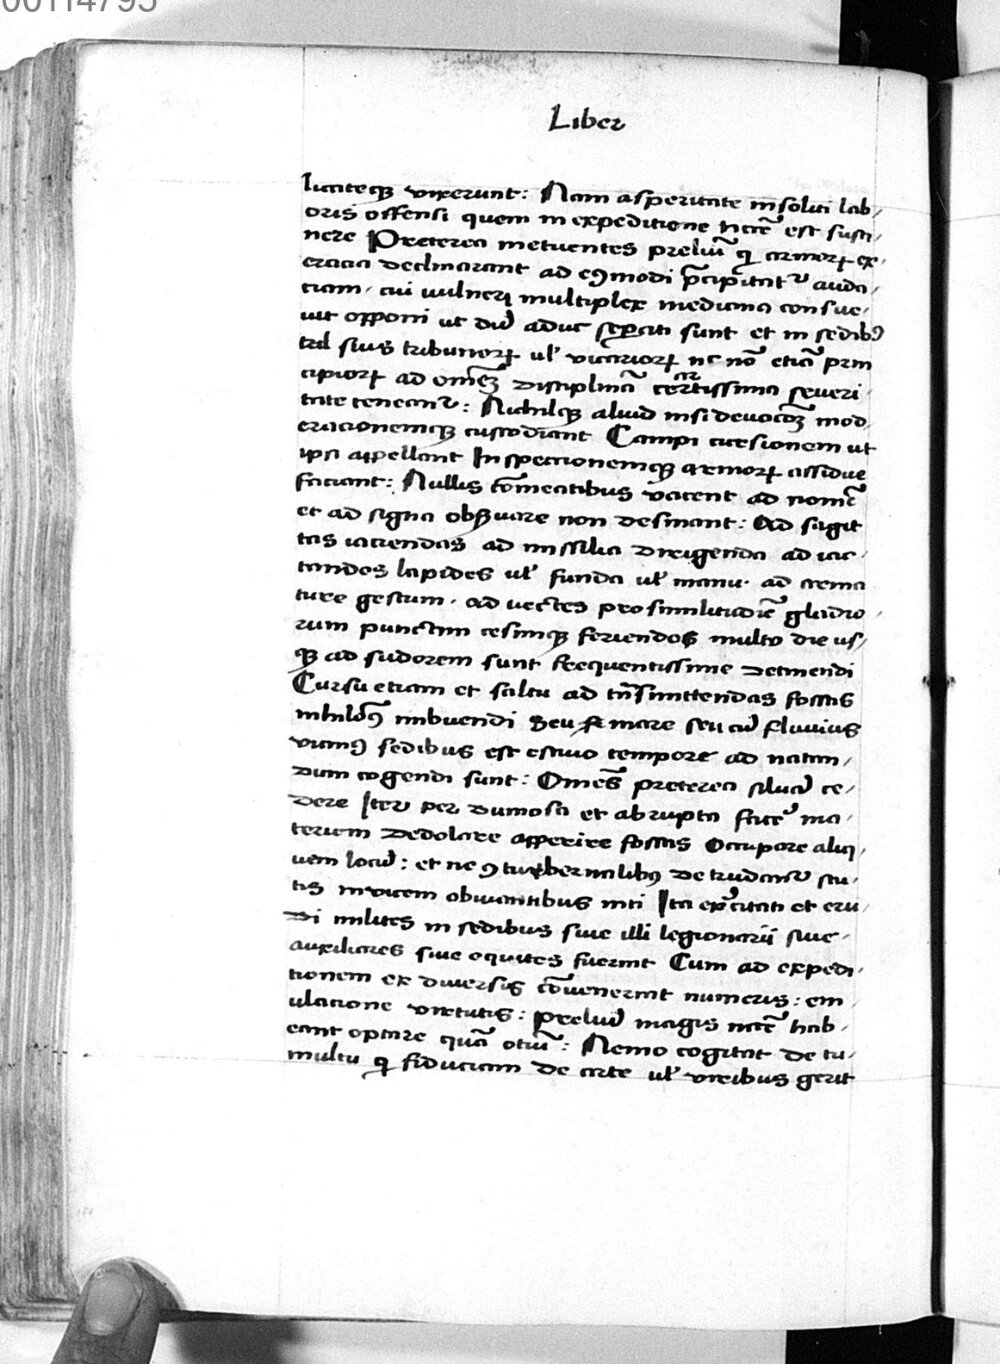 00114795
Liber
liciteqꝫ vixerunt: Nam asperitate insoliti lab,
oris offensi quem in expeditione nc̄cē est susti,
nere Preterea metuentes preliū qͥ armoꝝ ex,
ercicia declinarant ad cꝯmodi p̄cipitat᷑ auda,
ciam, cui vulneri multiplex medicina consue,
uit opponi ut dū adhuc in sedibꝰ
suis tribunoꝝ ul̄ vicarioꝝ nc nō etiā prin
cipioꝝ ad omēꝫ disciplinā certissima seueri
tate teneant᷑: Nichilqꝫ aliud nisi deuocōꝫ mod,
eracionemqꝫ custodiant Campi cursionem ut
ipsi appellant Inspeccionemqꝫ armoꝝ assidue
faciant: Nullis cōmeatibus vacent ad nomē
et ad signa obẞuare non desinant: Ad sagit
tas iaciendas ad missilia dirigenda ad iac,
tandos lapides ul̄ funda ul̄ manu. ad arma
ture gestum. ad vectes pro similitudīē gladio,
rum punctim cesimqꝫ feriendos multo die us,
qꝫ ad sudorem sunt frequentissime detinendi
Cursu etiam et saltu ad tn̄smittendas fossas
imbuendi Seu mare seu cū fluuius
vicinꝰ sedibus est estiuo tempore ad natan,
dum cogendi sunt: Omēs preterea siluā ce,
dere Iter per dumosa et abrupta face᷑ ma,
teriem dedolare apperire fossas Occupare aliq,
uem locū: et ne ꝯtubernalibꝰ detrudant᷑ scu,
tis inuicem obuiantibus niti Ita ex̄citati et eru,
di milites in sedibus siue illi legionarii siue,
auxiliares siue equites fuerint Cum ad expedi,
tionem ex diuersis cōuenerint numeris: em
ulacione virtutis: preliū magis nc̄cē hab,
eant optare quā otiū: Nemo cogitat de tu,
multu qͥ fiduciam de arte ul̄ viribus gerit